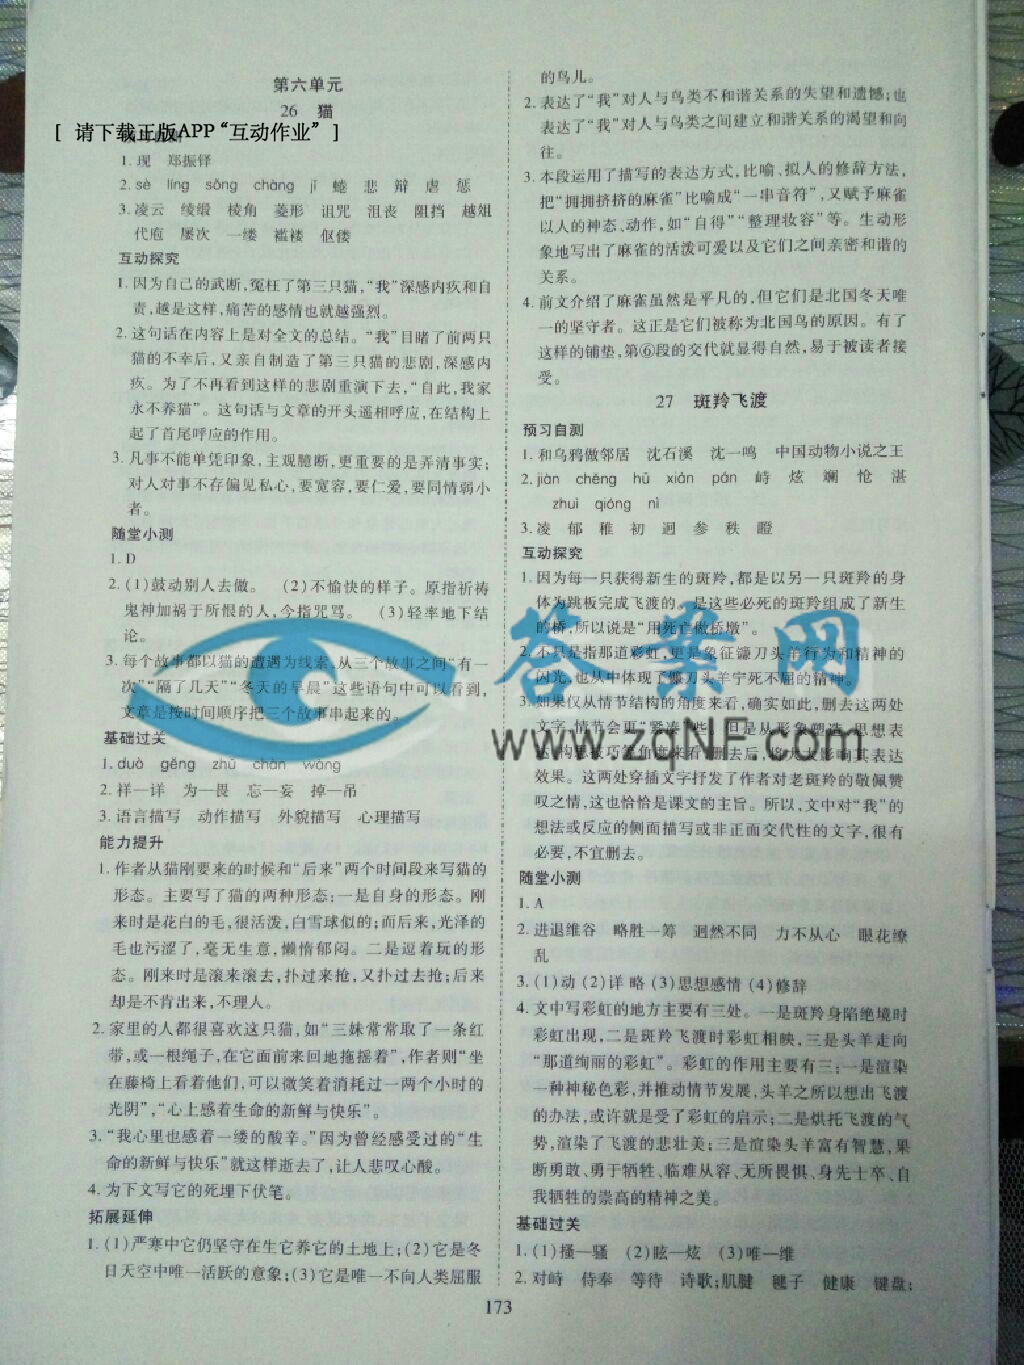 第六单元
26 猫
[ 请下载正版APP“互动作业” ]
1. 现 郑振铎
2. sè líng sǒng chàng jī 蜷 悲 辩 虐 惩
3. 凌云 绫缎 棱角 菱形 诅咒 沮丧 阻挡 越俎
代庖 屡次 一缕 褴褛 伛偻
互动探究
1. 因为自己的武断,冤枉了第三只猫,“我”深感内疚和自
责,越是这样,痛苦的感情也就越强烈。
2. 这句话在内容上是对全文的总结。“我”目睹了前两只
猫的不幸后,又亲自制造了第三只猫的悲剧,深感内
疚。为了不再看到这样的悲剧重演下去,“自此,我家
永不养猫”。这句话与文章的开头遥相呼应,在结构上
起了首尾呼应的作用。
3. 凡事不能单凭印象,主观臆断,更重要的是弄清事实;
对人对事不存偏见私心,要宽容,要仁爱,要同情弱小
者。
随堂小测
1. D
2. (1)鼓动别人去做。 (2)不愉快的样子。原指祈祷
鬼神加祸于所恨的人,今指咒骂。 (3)轻率地下结
论。
3. 每个故事都以猫的遭遇为线索,从三个故事之间“有一
次”“隔了几天”“冬天的早晨”这些语句中可以看到,
文章是按时间顺序把三个故事串起来的。
基础过关
1. duō gēng zhǔ chàn wàng
2. 祥—详 为—畏 忘—妄 掉—吊
3. 语言描写 动作描写 外貌描写 心理描写
能力提升
1. 作者从猫刚要来的时候和“后来”两个时间段来写猫的
形态。主要写了猫的两种形态:一是自身的形态。刚
来时是花白的毛,很活泼,白雪球似的;而后来,光泽的
毛也污涩了,毫无生意,懒惰郁闷。二是逗着玩的形
态。刚来时是滚来滚去,扑过来抢,又扑过去抢;后来
却是不肯出来,不理人。
2. 家里的人都很喜欢这只猫,如“三妹常常取了一条红
带,或一根绳子,在它面前来回地拖摇着”,作者则“坐
在藤椅上看着他们,可以微笑着消耗过一两个小时的
光阴”,“心上感着生命的新鲜与快乐”。
3. “我心里也感着一缕的酸辛。”因为曾经感受过的“生
命的新鲜与快乐”就这样逝去了,让人悲叹心酸。
4. 为下文写它的死埋下伏笔。
拓展延伸
1. (1)严寒中它仍坚守在生它养它的土地上;(2)它是冬
日天空中唯一活跃的意象;(3)它是唯一不向人类屈服
的鸟儿。
2. 表达了“我”对人与鸟类不和谐关系的失望和遗憾;也
表达了“我”对人与鸟类之间建立和谐关系的渴望和向
往。
3. 本段运用了描写的表达方式,比喻、拟人的修辞方法,
把“拥拥挤挤的麻雀”比喻成“一串音符”,又赋予麻雀
以人的神态、动作,如“自得”“整理妆容”等。生动形
象地写出了麻雀的活泼可爱以及它们之间亲密和谐的
关系。
4. 前文介绍了麻雀虽然是平凡的,但它们是北国冬天唯
一的坚守者。这正是它们被称为北国鸟的原因。有了
这样的铺垫,第⑥段的交代就显得自然,易于被读者接
受。
27 斑羚飞渡
预习自测
1. 和乌鸦做邻居 沈石溪 沈一鸣 中国动物小说之王
2. jiàn chěng hū xián pán 峙 炫 斓 怆 湛
zhuì qióng nì
3. 凌 郁 稚 初 迥 参 秩 瞪
互动探究
1. 因为每一只获得新生的斑羚,都是以另一只斑羚的身
体为跳板完成飞渡的。是这些必死的斑羚组成了新生
的桥,所以说是“用死亡做桥墩”。
2. 不只是指那道彩虹,更是象征镰刀头羊行为和精神的
闪光,也从中体现了镰刀头羊宁死不屈的精神。
3. 如果仅从情节结构的角度来看,确实如此,删去这两处
文字,情节会更“紧凑”些。但是从形象塑造、思想表
达、构思技巧等角度来看,删去后,将大大影响其表达
效果。这两处穿插文字抒发了作者对老斑羚的敬佩赞
叹之情,这也恰恰是课文的主旨。所以,文中对“我”的
想法或反应的侧面描写或非正面交代性的文字,很有
必要,不宜删去。
随堂小测
1. A
2. 进退维谷 略胜一筹 迥然不同 力不从心 眼花缭
乱
3. (1)动 (2)详 略 (3)思想感情 (4)修辞
4. 文中写彩虹的地方主要有三处。一是斑羚身陷绝境时
彩虹出现,二是斑羚飞渡时彩虹相映,三是头羊走向
“那道绚丽的彩虹”。彩虹的作用主要有三:一是渲染
一种神秘色彩,并推动情节发展,头羊之所以想出飞渡
的办法,或许就是受了彩虹的启示;二是烘托飞渡的气
势,渲染了飞渡的悲壮美;三是渲染头羊富有智慧,果
断勇敢、勇于牺牲、临难从容、无所畏惧、身先士卒、自
我牺牲的崇高的精神之美。
基础过关
1. (1)搔—骚 (2)眩—炫 (3)唯—维
2. 对峙 侍奉 等待 诗歌;肌腱 毽子 健康 键盘;
173
答案网
www.zqNF.com